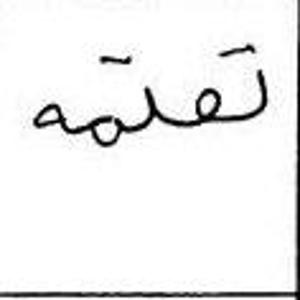 تعلمته